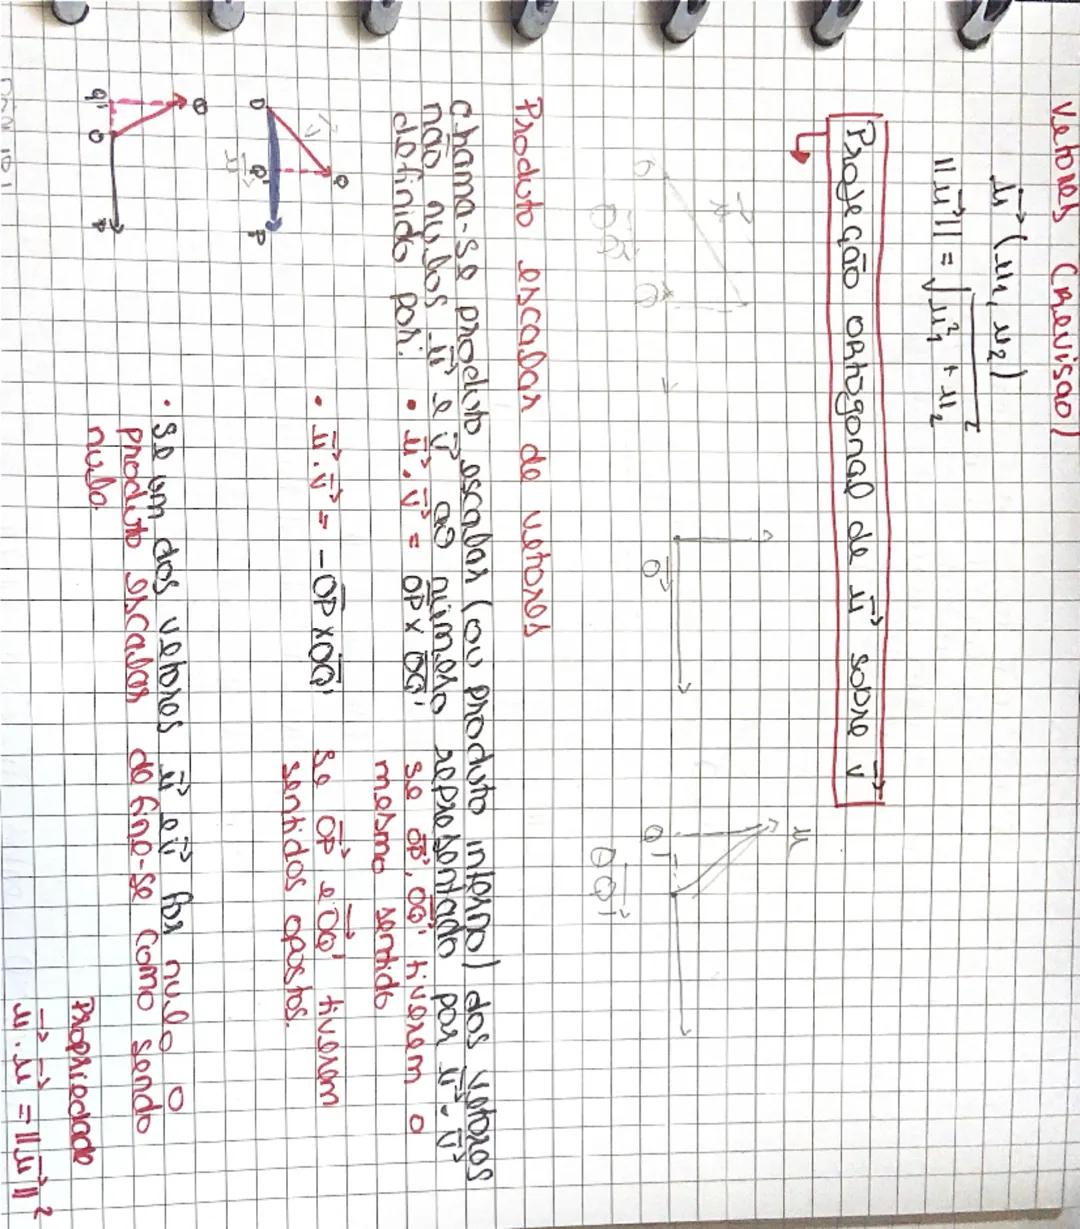 Vetores (revisão)
u⃗ (u₁, u₂)
||u⃗|| = √u₁² + u₂²
Projeção ortogonal de u⃗ sobre v⃗
u
O
O'
O
OQ'
OQ'
Produto escalar de vetores
Chama-se produto escalar (ou produto interno) dos vetores
não nulos u⃗ e v⃗ ao número representado por u⃗.v⃗
definido por:
• u⃗.v⃗ = OP x OQ' se OP⃗, OQ'⃗ tiverem o
mesmo sentido
• u⃗.v⃗ = -OP x OQ' se OP⃗ e OQ'⃗ tiverem
sentidos opostos.
O Q Q' P
v⃗
Q Q' O P
• Se um dos vetores u⃗ e v⃗ for nulo o
produto escalar define-se como sendo
nulo.
Propriedade
u⃗ . u⃗ = ||u⃗||²